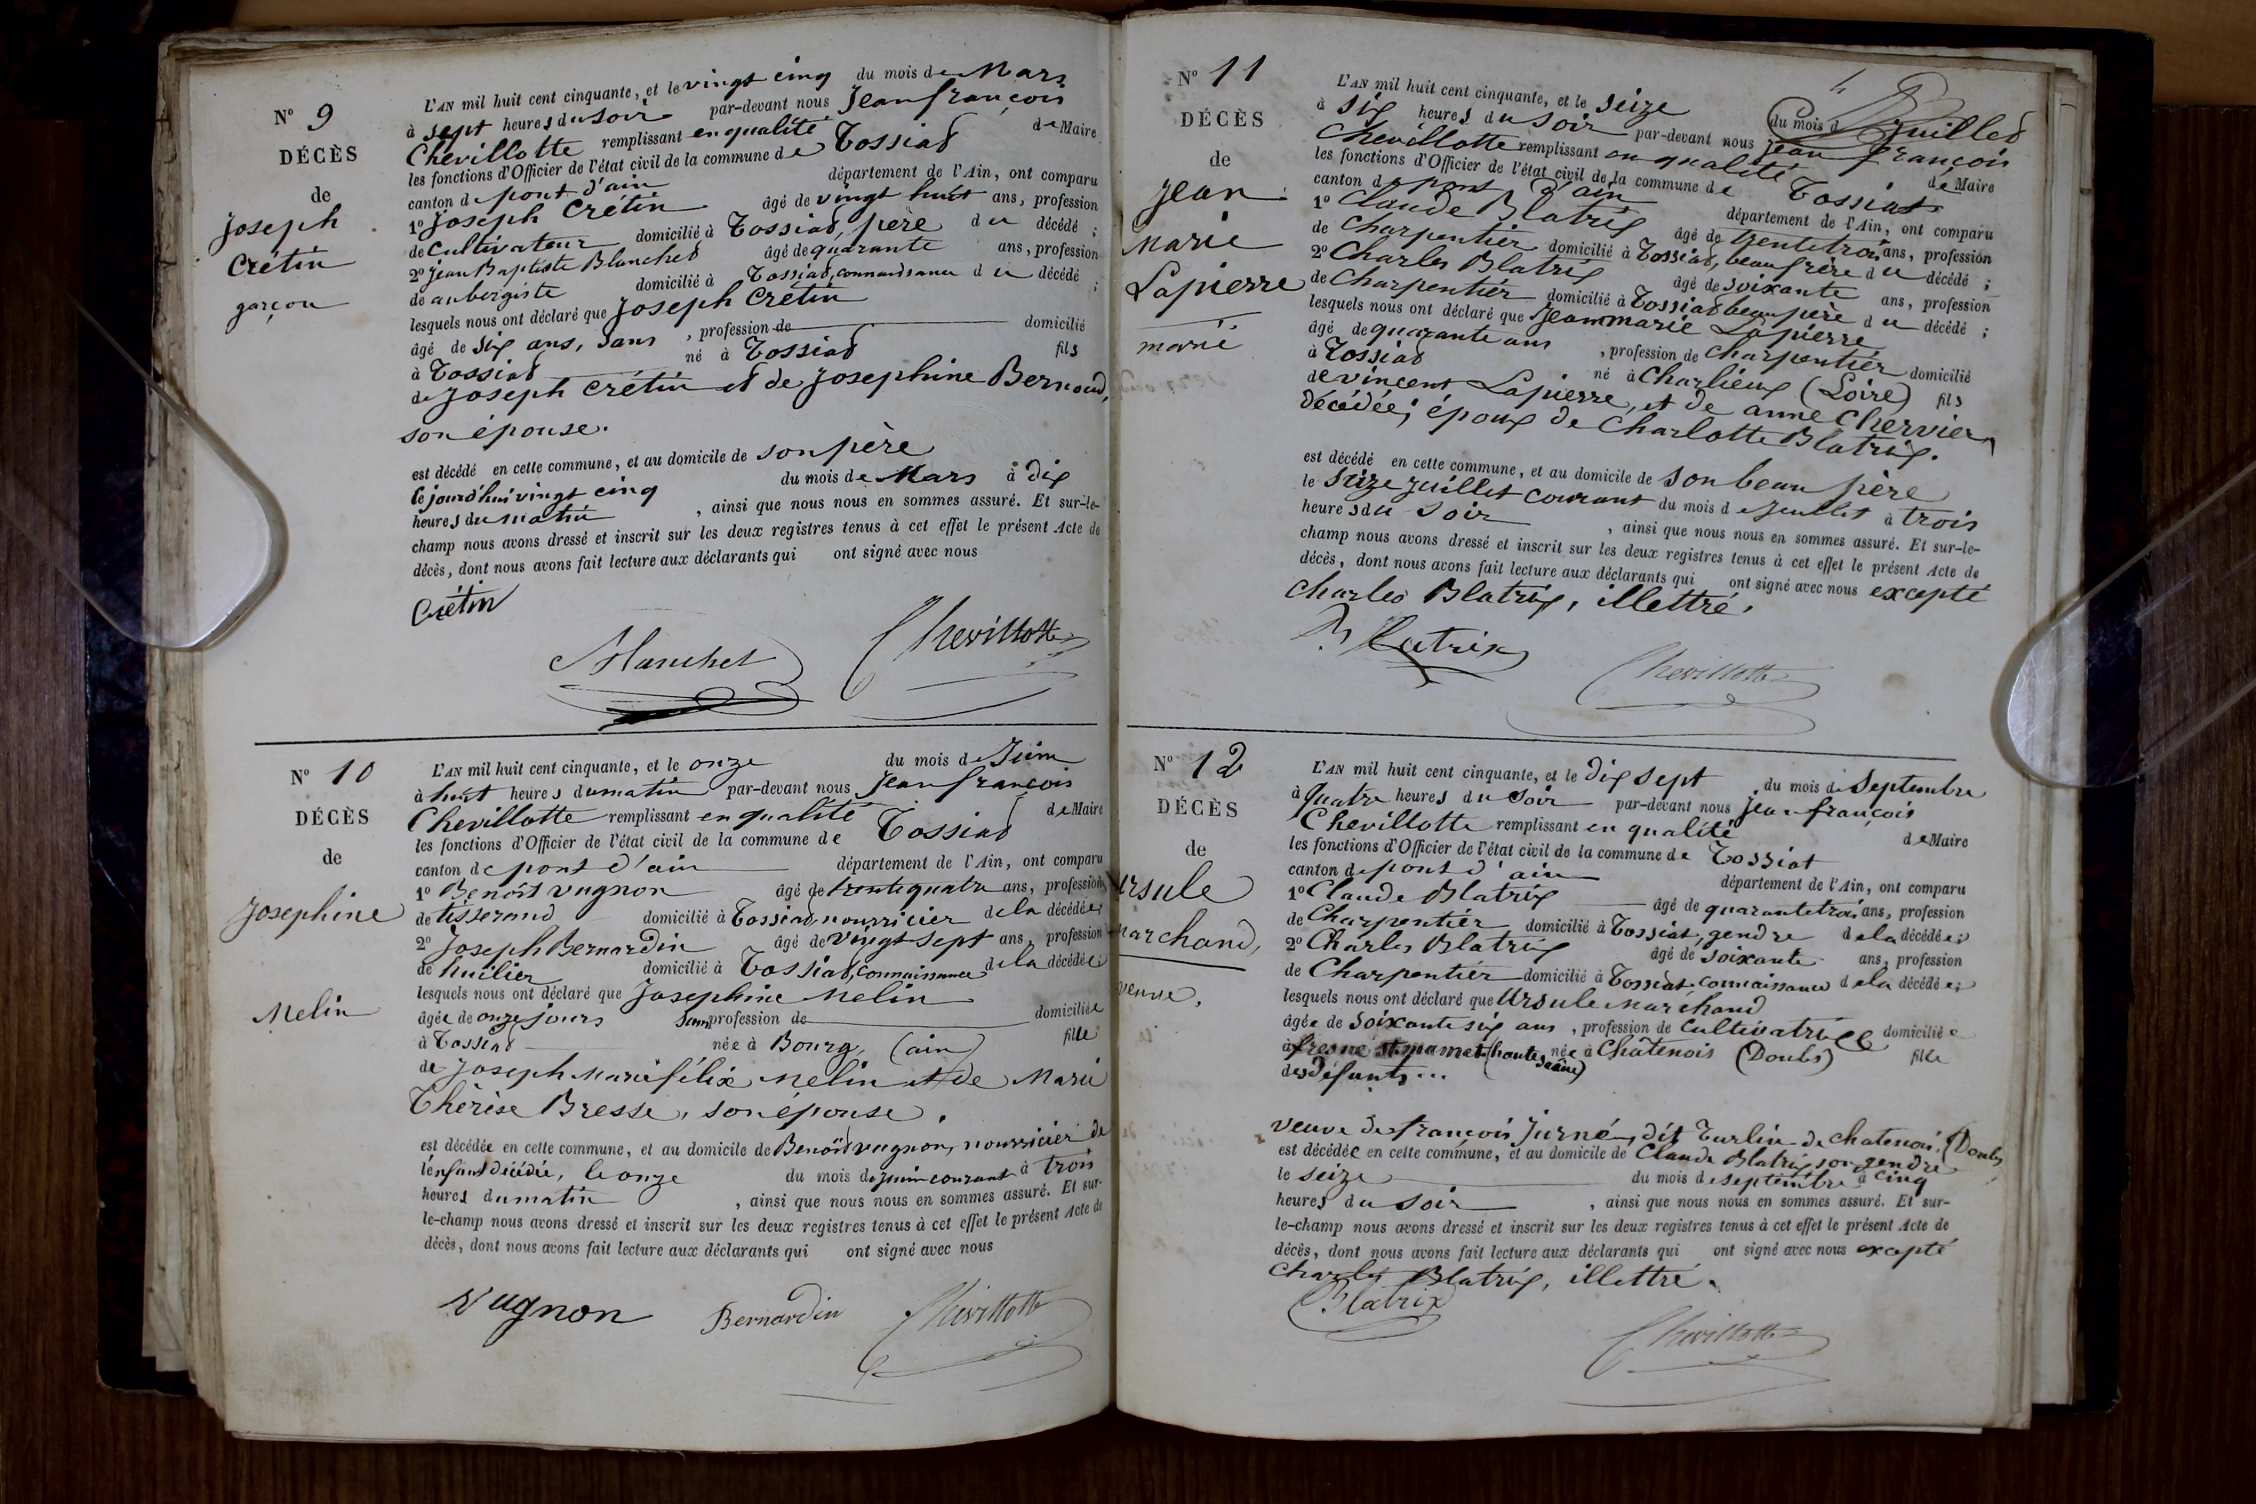 N° 9
DÉCÈS
de
Joseph
Crétin
garçon
L'AN mil huit cent cinquante, et le vingt cinq du mois de Mars
à sept heures du soir par-devant nous Jean françois
Chevillotte remplissant en qualité de Maire
les fonctions d'Officier de l'état civil de la commune de Tossiat
canton de pont d'ain département de l'Ain, ont comparu
1° Joseph Crétin âgé de vingt huit ans, profession
de Cultivateur domicilié à Tossiat, père du décédé ;
2° Jean Baptiste Blanchet âgé de quarante ans, profession
de aubergiste domicilié à Tossiat, connaissance du décédé ;
lesquels nous ont déclaré que Joseph Crétin
âgé de six ans, sans , profession de domicilié
à Tossiat né à Tossiat fils
de Joseph Crétin et de Josephine Bernoud,
son épouse.
est décédé en cette commune, et au domicile de son père
le jourd'hui vingt cinq du mois de Mars à dix
heures du matin , ainsi que nous nous en sommes assuré. Et sur-le-
champ nous avons dressé et inscrit sur les deux registres tenus à cet effet le présent Acte de
décès, dont nous avons fait lecture aux déclarants qui ont signé avec nous
Crétin
Blanchet Chevillotte
N° 10
DÉCÈS
de
Josephine
Melin
L'AN mil huit cent cinquante, et le onze du mois de Juin
à huit heures du matin par-devant nous Jean françois
Chevillotte remplissant en qualité de Maire
les fonctions d'Officier de l'état civil de la commune de Tossiat
canton de pont d'ain département de l'Ain, ont comparu
1° Benoît vugnon âgé de trente quatre ans, profession
de tisserand domicilié à Tossiat, nourricier de la décédée;
2° Joseph Bernardin âgé de vingt sept ans, profession
de huilier domicilié à Tossiat, connaissance de la décédée
lesquels nous ont déclaré que Josephine Melin
âgée de onze jours sans profession de domiciliée
à Tossiat née à Bourg, (ain) fille
de Joseph Marie félix Melin et de Marie
Thérèse Bresse, son épouse.
est décédée en cette commune, et au domicile de Benoît vugnon, nourricier de
l'enfant décédée, le onze du mois de juin courant à trois
heures du matin , ainsi que nous nous en sommes assuré. Et sur-
le-champ nous avons dressé et inscrit sur les deux registres tenus à cet effet le présent Acte de
décès, dont nous avons fait lecture aux déclarants qui ont signé avec nous
Vugnon Bernardin Chevillotte
N° 11
DÉCÈS
de
Jean
Marie
Lapierre
marié
L'AN mil huit cent cinquante, et le seize du mois de Juillet
à six heures du soir par-devant nous Jean françois
Chevillotte remplissant en qualité de Maire
les fonctions d'Officier de l'état civil de la commune de Tossiat
canton de pont d'ain département de l'Ain, ont comparu
1° Claude Blatrix âgé de trente trois ans, profession
de Charpentier domicilié à Tossiat, beau frère du décédé ;
2° Charles Blatrix âgé de soixante ans, profession
de Charpentier domicilié à Tossiat beau père du décédé ;
lesquels nous ont déclaré que Jean marie Lapierre
âgé de quarante ans , profession de charpentier domicilié
à Tossiat né à Charlieux (Loire) fils
de vincent Lapierre, et de anne Chervier,
décédée; époux de Charlotte Blatrix.
est décédé en cette commune, et au domicile de son beau père
le seize juillet courant du mois de Juillet à trois
heures du soir , ainsi que nous nous en sommes assuré. Et sur-le-
champ nous avons dressé et inscrit sur les deux registres tenus à cet effet le présent Acte de
décès, dont nous avons fait lecture aux déclarants qui ont signé avec nous excepté
Charles Blatrix, illettré.
Blatrix
Chevillotte
N° 12
DÉCÈS
de
Ursule
Marchand,
veuve.
L'AN mil huit cent cinquante, et le dix sept du mois de Septembre
à quatre heures du soir par-devant nous jean françois
Chevillotte remplissant en qualité de Maire
les fonctions d'Officier de l'état civil de la commune de Tossiat
canton de pont d'ain département de l'Ain, ont comparu
1° Claude Blatrix âgé de quarante trois ans, profession
de Charpentier domicilié à Tossiat, gendre de la décédée;
2° Charles Blatrix âgé de soixante ans, profession
de Charpentier domicilié à Tossiat connaissance de la décédée;
lesquels nous ont déclaré que Ursule Marchand
âgée de soixante six ans , profession de Cultivatrice domiciliée
à fresne st. mamet (haute Saône) née à Châtenois (Doubs) fille
des défunts...
veuve de françois Jurné, dit Turlin de chatenois, (Doubs)
est décédée en cette commune, et au domicile de Claude Blatrix son gendre
le seize du mois de septembre à cinq
heures du soir , ainsi que nous nous en sommes assuré. Et sur-
le-champ nous avons dressé et inscrit sur les deux registres tenus à cet effet le présent Acte de
décès, dont nous avons fait lecture aux déclarants qui ont signé avec nous excepté
Charles Blatrix, illettré.
Blatrix
Chevillotte